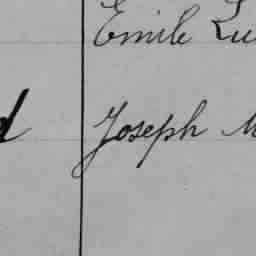 Emile Lu
d Joseph M